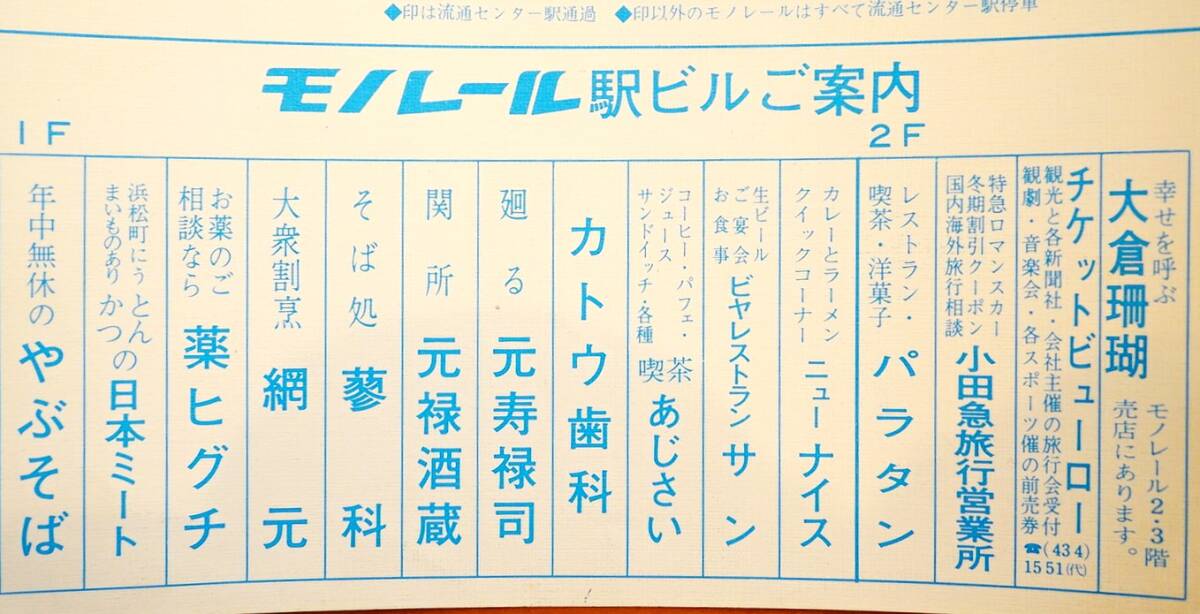 ◆印は流通センター駅通過 ◆印以外のモノレールはすべて流通センター駅停車
モノレール駅ビルご案内
2F
幸せを呼ぶ
大倉珊瑚
モノレール2・3階
売店にあります。
チケットビューロー
観光と各新聞社・会社主催の旅行会受付
観劇・音楽会・各スポーツ催の前売券
☎(434)
1551(代)
特急ロマンスカー
冬期割引クーポン
国内海外旅行相談
小田急旅行営業所
レストラン・
喫茶・洋菓子
パラタン
1F
カレーとラーメン
クイックコーナー
ニューナイス
生ビール
ご宴会
お食事
ビヤレストラン サン
コーヒー・パフェ・
ジュース
サンドイッチ・各種
喫茶
あじさい
カトウ歯科
廻る 元寿禄司
関所 元禄酒蔵
そば処 蓼科
大衆割烹 網元
お薬のご
相談なら
薬ヒグチ
浜松町にう
まいものあり
とん
かつ
の日本ミート
年中無休の やぶそば